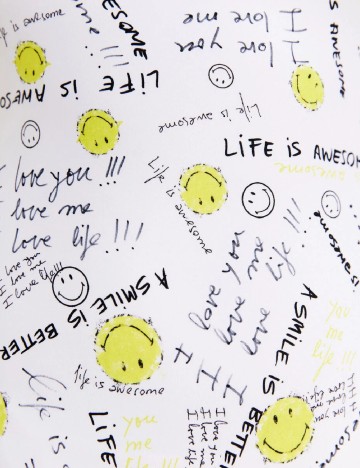 life is awesome
AWESOME
love
me
!!!
I love me
I love you
IS AWESOME
LIFE IS AWESO
Life is awesome
LIFE IS AWESOM
awesome
I love you !!!
love me
love life !!!
Life is awesome
I love you
I love me
I love life!!!
I love you
I love me
I love life !!!
awesome
A SMILE IS BETTER
A SMILE IS BETTER
you
me
life !!!
life is awesome
Life is
LIFE
you
me
life !!
I love you
I love me
I love life
I love you
I love me
I love life